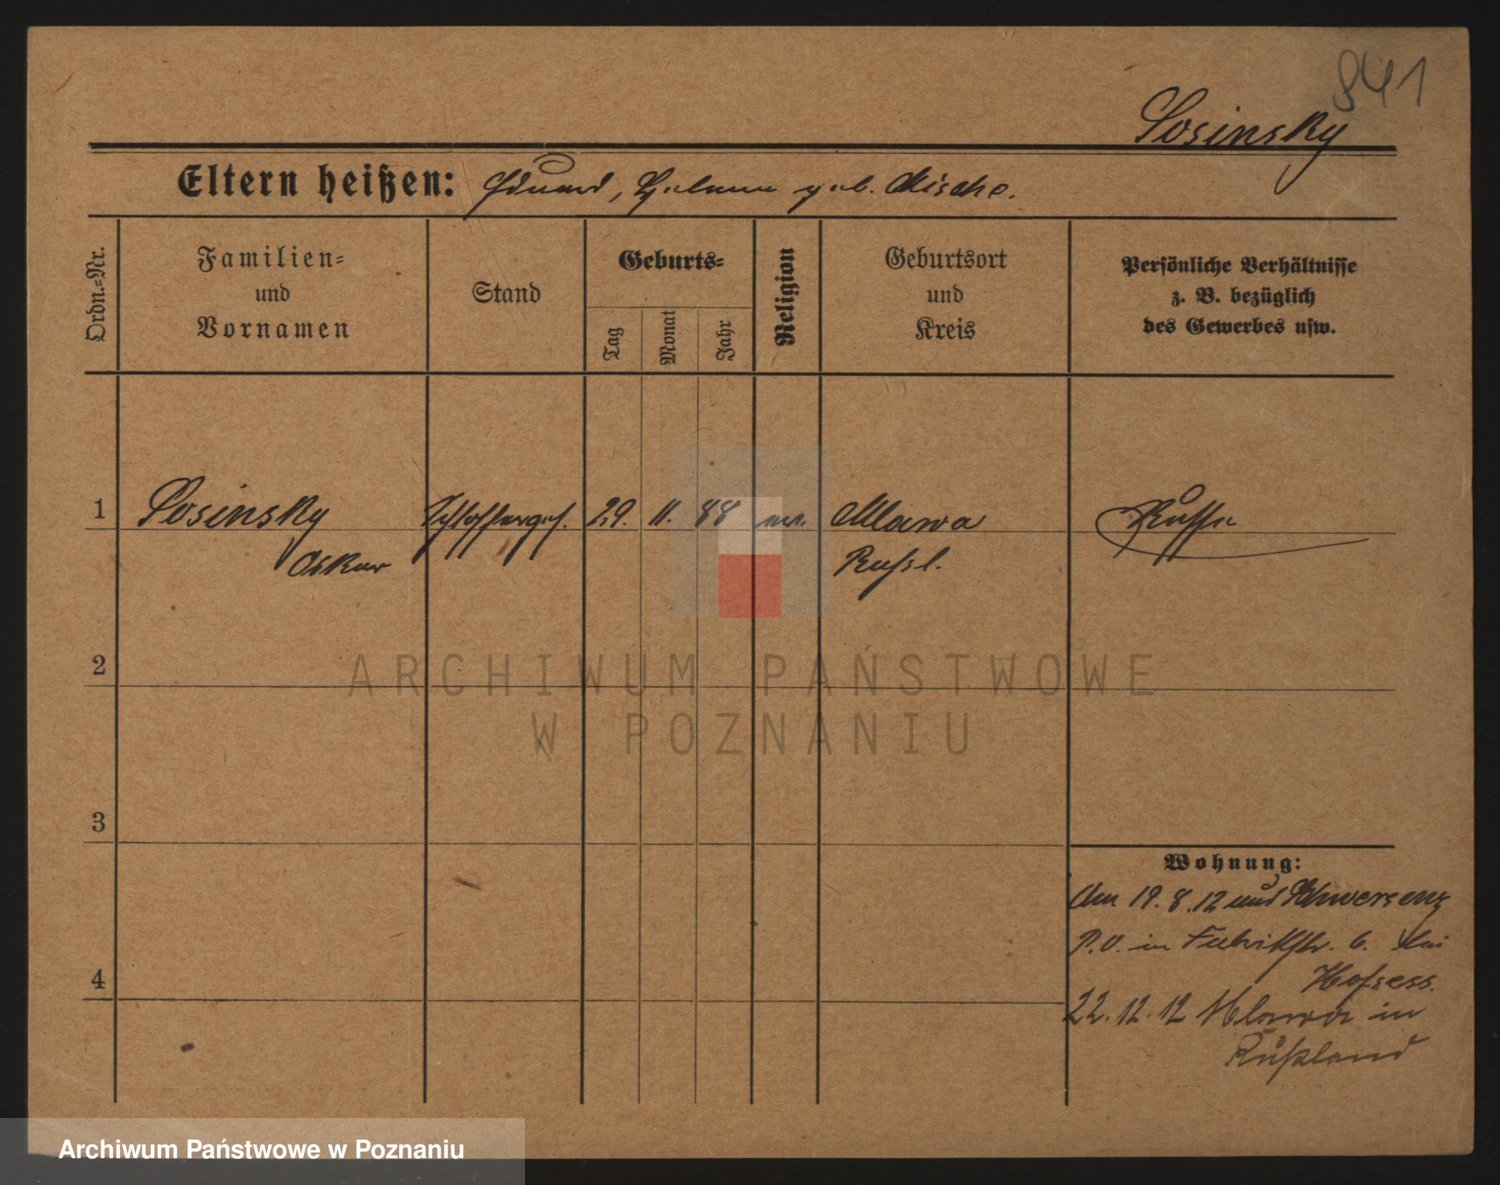 841
Sosinsky
Eltern heißen: Eduard, Helene geb. Mische.
Ordn.-Nr.
Familien-
und
Vornamen
Stand
Geburts-
Tag
Monat
Jahr
Religion
Geburtsort
und
Kreis
Persönliche Verhältnisse
z. B. bezüglich
des Gewerbes usw.
1
Sosinsky
Oskar
Schlosserges.
29. 11. 88
Mlawa
Russl.
Russe
2
3
4
Wohnung:
Am 19.8.12 aus Schwersenz
P.O. in Fabrikstr. 6. bei
22.12.12 Mlawa in
Rußland
ARCHIWUM PAŃSTWOWE
W POZNANIU
Archiwum Państwowe w Poznaniu